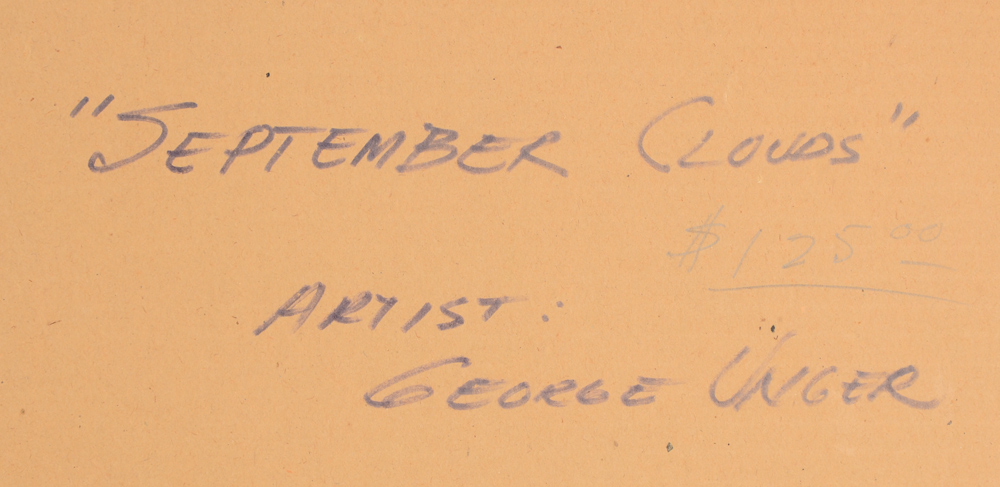 "SEPTEMBER CLOUDS"
$125.00
ARTIST:
GEORGE UNGER